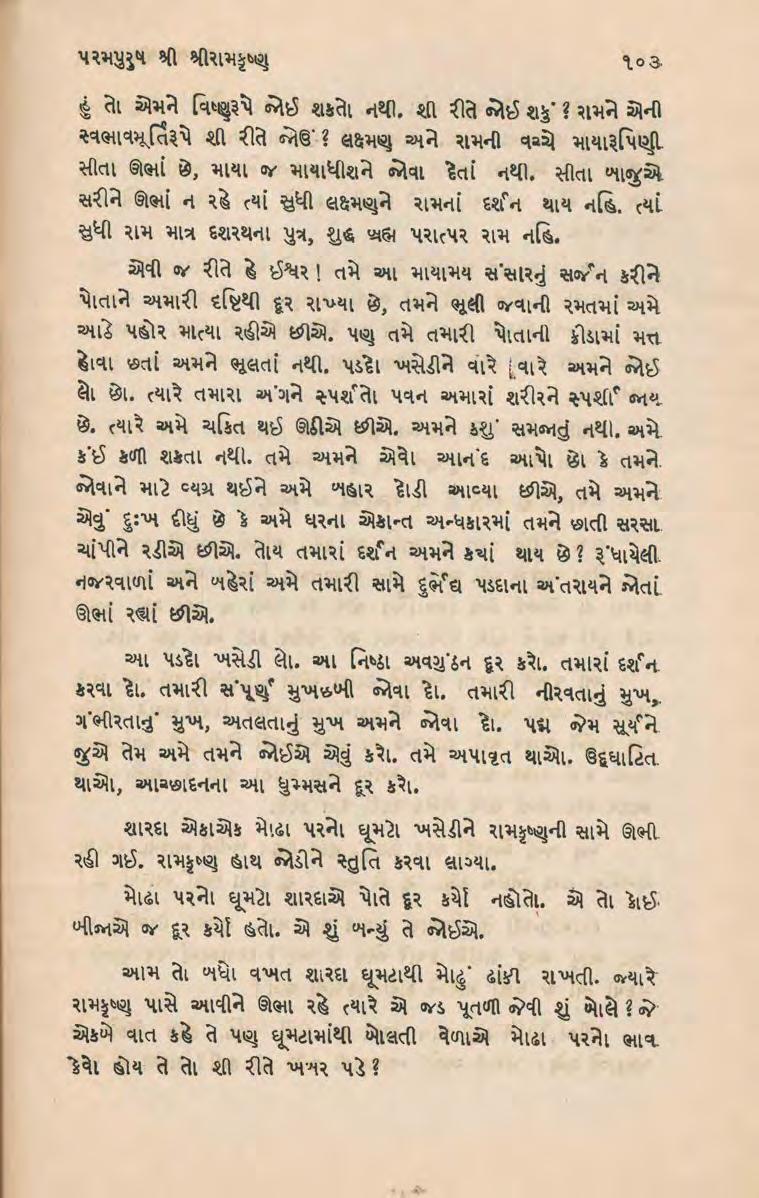 પરમપુરુષ શ્રી શ્રીરામકૃષ્ણ ૧૦૩
હું તો એમને વિષ્ણુરૂપે જોઈ શકતો નથી. શી રીતે જોઈ શકું ? રામને એની
સ્વભાવમૂર્તિરૂપે શી રીતે જોઉં ? લક્ષ્મણ અને રામની વચ્ચે માયારૂપિણી
સીતા ઊભાં છે, માયા જ માયાધીશને જોવા દેતાં નથી. સીતા બાજુએ
સરીને ઊભાં ન રહે ત્યાં સુધી લક્ષ્મણને રામનાં દર્શન થાય નહિ. ત્યાં
સુધી રામ માત્ર દશરથના પુત્ર, શુદ્ધ બ્રહ્મ પરાત્પર રામ નહિ.
એવી જ રીતે હે ઈશ્વર ! તમે આ માયામય સંસારનું સર્જન કરીને
પોતાને અમારી દૃષ્ટિથી દૂર રાખ્યા છે, તમને ભૂલી જવાની રમતમાં અમે
આઠે પહોર માત્યા રહીએ છીએ. પણ તમે તમારી પોતાની ક્રીડામાં મત્ત
હોવા છતાં અમને ભૂલતાં નથી. પડદો ખસેડીને વારે વારે અમને જોઈ
લો છો. ત્યારે તમારા અંગને સ્પર્શતો પવન અમારાં શરીરને સ્પર્શી જાય
છે. ત્યારે અમે ચકિત થઈ ઊઠીએ છીએ. અમને કશું સમજાતું નથી. અમે
કંઈ કળી શકતા નથી. તમે અમને એવો આનંદ આપો છો કે તમને
જોવાને માટે વ્યગ્ર થઈને અમે બહાર દોડી આવ્યા છીએ, તમે અમને
એવું દુઃખ દીધું છે કે અમે ઘરના એકાન્ત અન્ધકારમાં તમને છાતી સરસા
ચાંપીને રડીએ છીએ. તોય તમારાં દર્શન અમને ક્યાં થાય છે ? રૂંધાયેલી
નજરવાળાં અને બહેરાં અમે તમારી સામે દુર્ભેદ્ય પડદાના અંતરાયને જોતાં
ઊભાં રહ્યાં છીએ.
આ પડદો ખસેડી લો. આ નિષ્ઠા અવગુંઠન દૂર કરો. તમારાં દર્શન
કરવા દો. તમારી સંપૂર્ણ મુખછબી જોવા દો. તમારી નીરવતાનું મુખ,
ગંભીરતાનું મુખ, અતલતાનું મુખ અમને જોવા દો. પદ્મ જેમ સૂર્યને
જુએ તેમ અમે તમને જોઈએ એવું કરો. તમે અપાવૃત થાઓ. ઉદ્ઘાટિત
થાઓ, આચ્છાદનના આ ધુમ્મસને દૂર કરો.
શારદા એકાએક મોઢા પરનો ઘૂમટો ખસેડીને રામકૃષ્ણની સામે ઊભી
રહી ગઈ. રામકૃષ્ણ હાથ જોડીને સ્તુતિ કરવા લાગ્યા.
મોઢા પરનો ઘૂમટો શારદાએ પોતે દૂર કર્યો નહોતો. એ તો કોઈ
બીજાએ જ દૂર કર્યો હતો. એ શું બન્યું તે જોઈએ.
આમ તો બધો વખત શારદા ઘૂમટાથી મોઢું ઢાંકી રાખતી. જ્યારે
રામકૃષ્ણ પાસે આવીને ઊભા રહે ત્યારે એ જડ પૂતળી જેવી શું બોલે ? જે
એકબે વાત કહે તે પણ ઘૂમટામાંથી બોલતી વેળાએ મોઢા પરનો ભાવ
કેવો હોય તે તો શી રીતે ખબર પડે ?